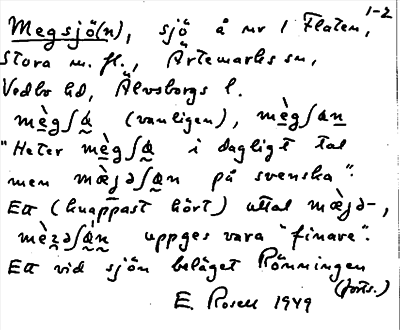 1-2
Megsjö(n), sjö å nr 1 Flaten,
Stora m. fl., Ärtemarks sn,
Vedbo hd, Älvsborgs l.
mègʃa̰ (vanligen), mègʃa̰n
"Heter mègʃa̰ i dagligt tal
men mæ̀jəʃa̰n på svenska".
Ett (knappast hört) uttal mæ̀jə-,
mèʒəʃa̰n uppges vara "finare".
Ett vid sjön beläget Rönningen
(forts.)
E. Rosell 1949